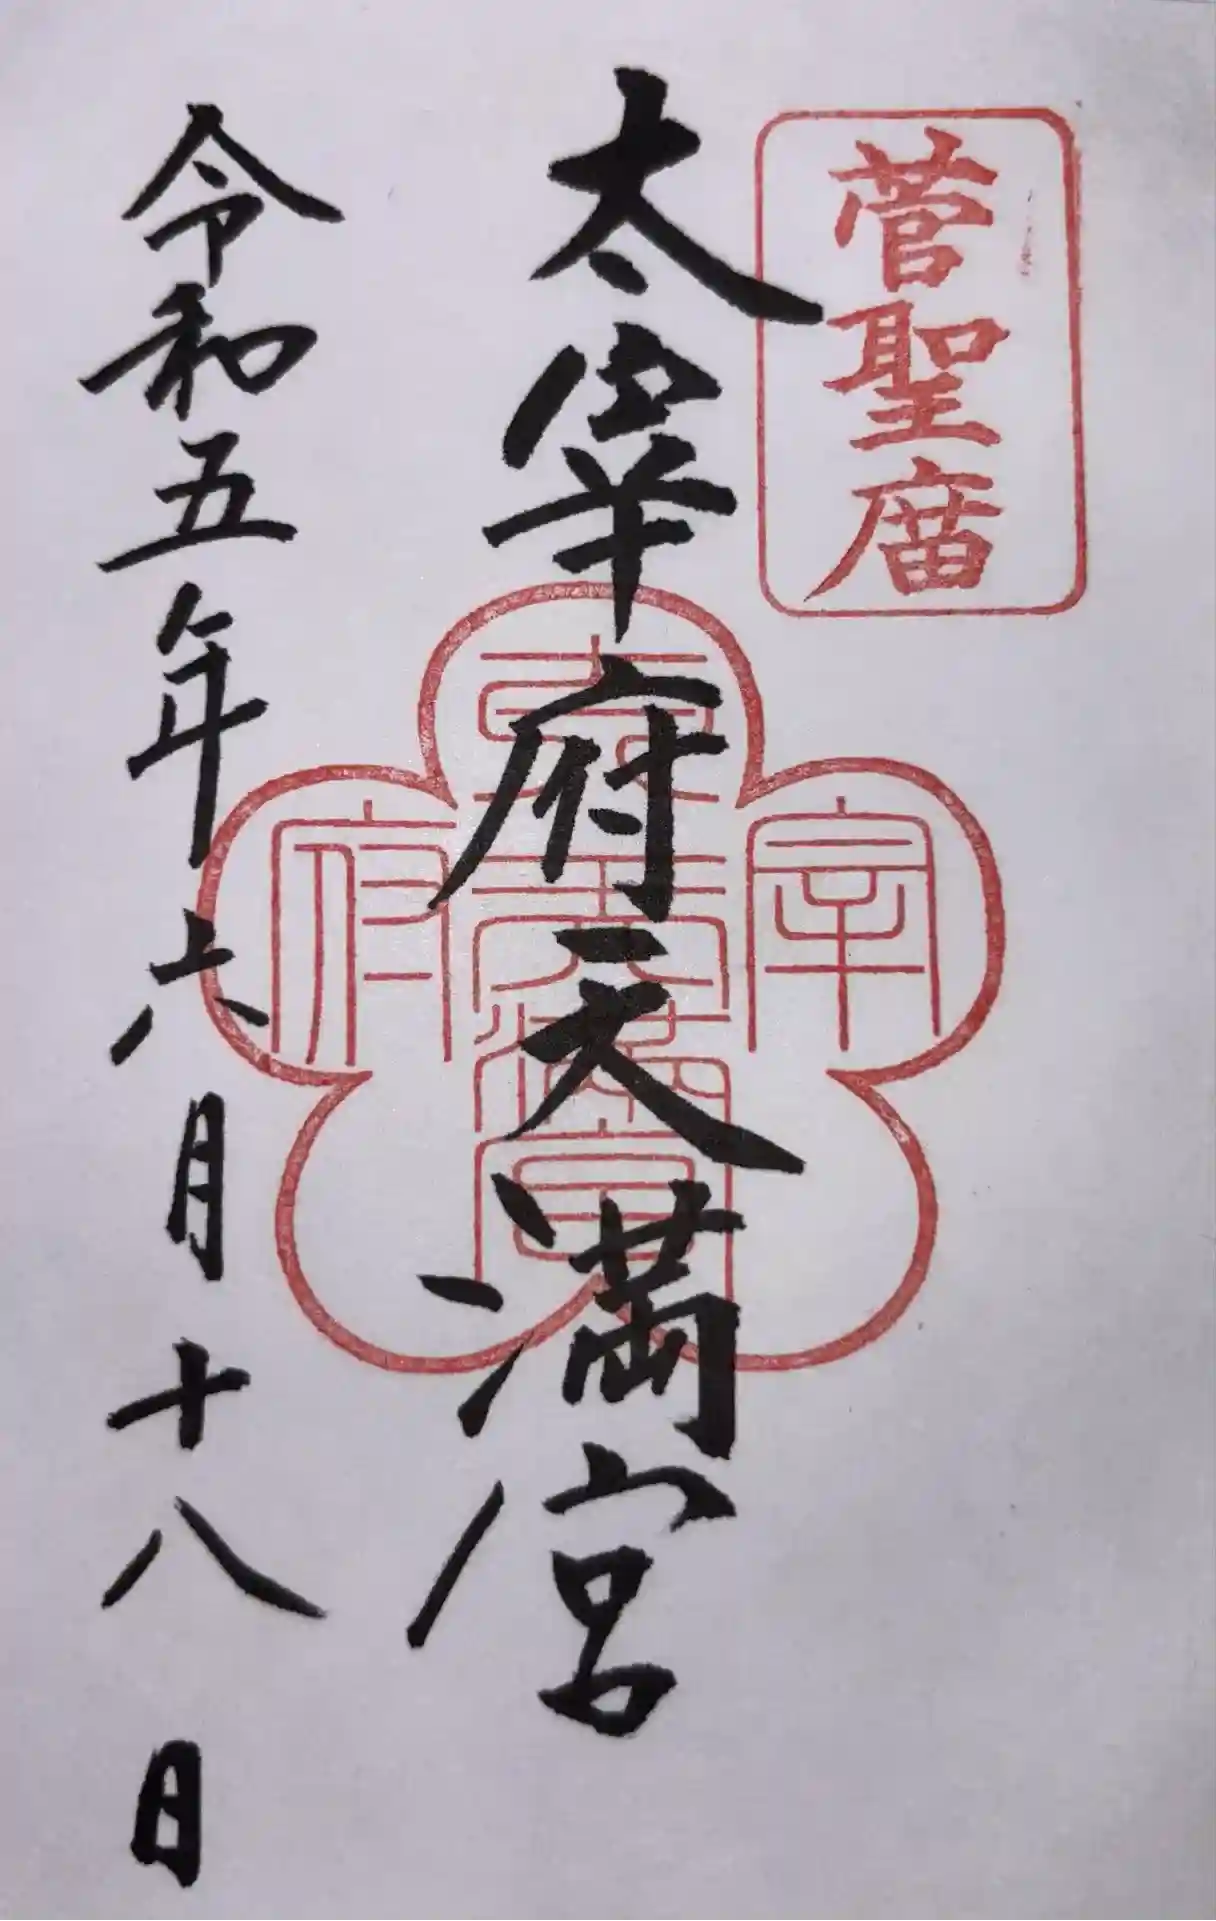 菅聖廟
太宰府天満宮
太宰府天満宮
令和五年六月十八日